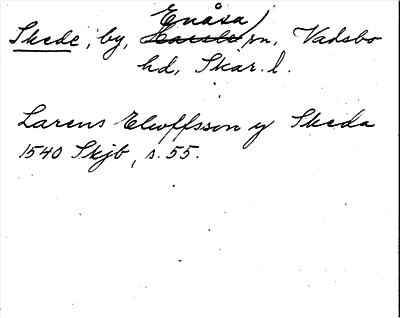 Enåsa
Skede, by, sn, Vadsbo
hd, Skar. l.
Larens Elwffsson y Skeda
1540 Skjb, s. 55.